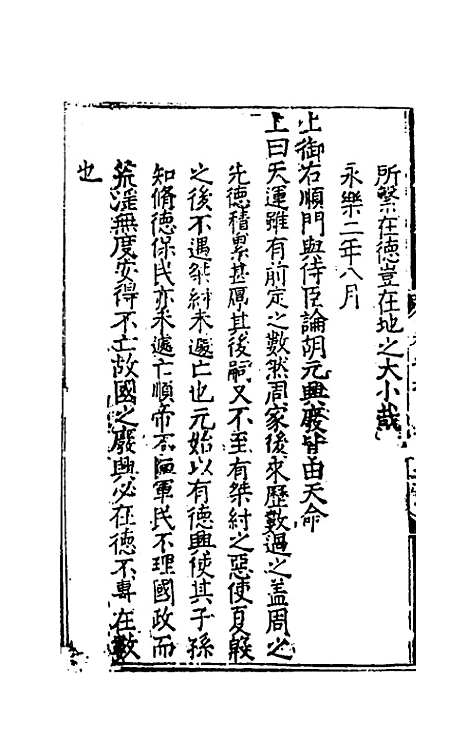 所繫在德豈在地之大小哉
永樂二年八月
上御右順門與侍臣論胡元興廢皆由天命
上曰天運雖有前定之數然周家後來歷數過之蓋周之
先德積累甚厚其後嗣又不至有桀紂之惡使夏殷
之後不遇桀紂未遽亡也元始以有德興使其子孫
知脩德保民亦未遽亡順帝不恤軍民不理國政而
荒淫無度安得不亡故國之廢興必在德不專在數
也